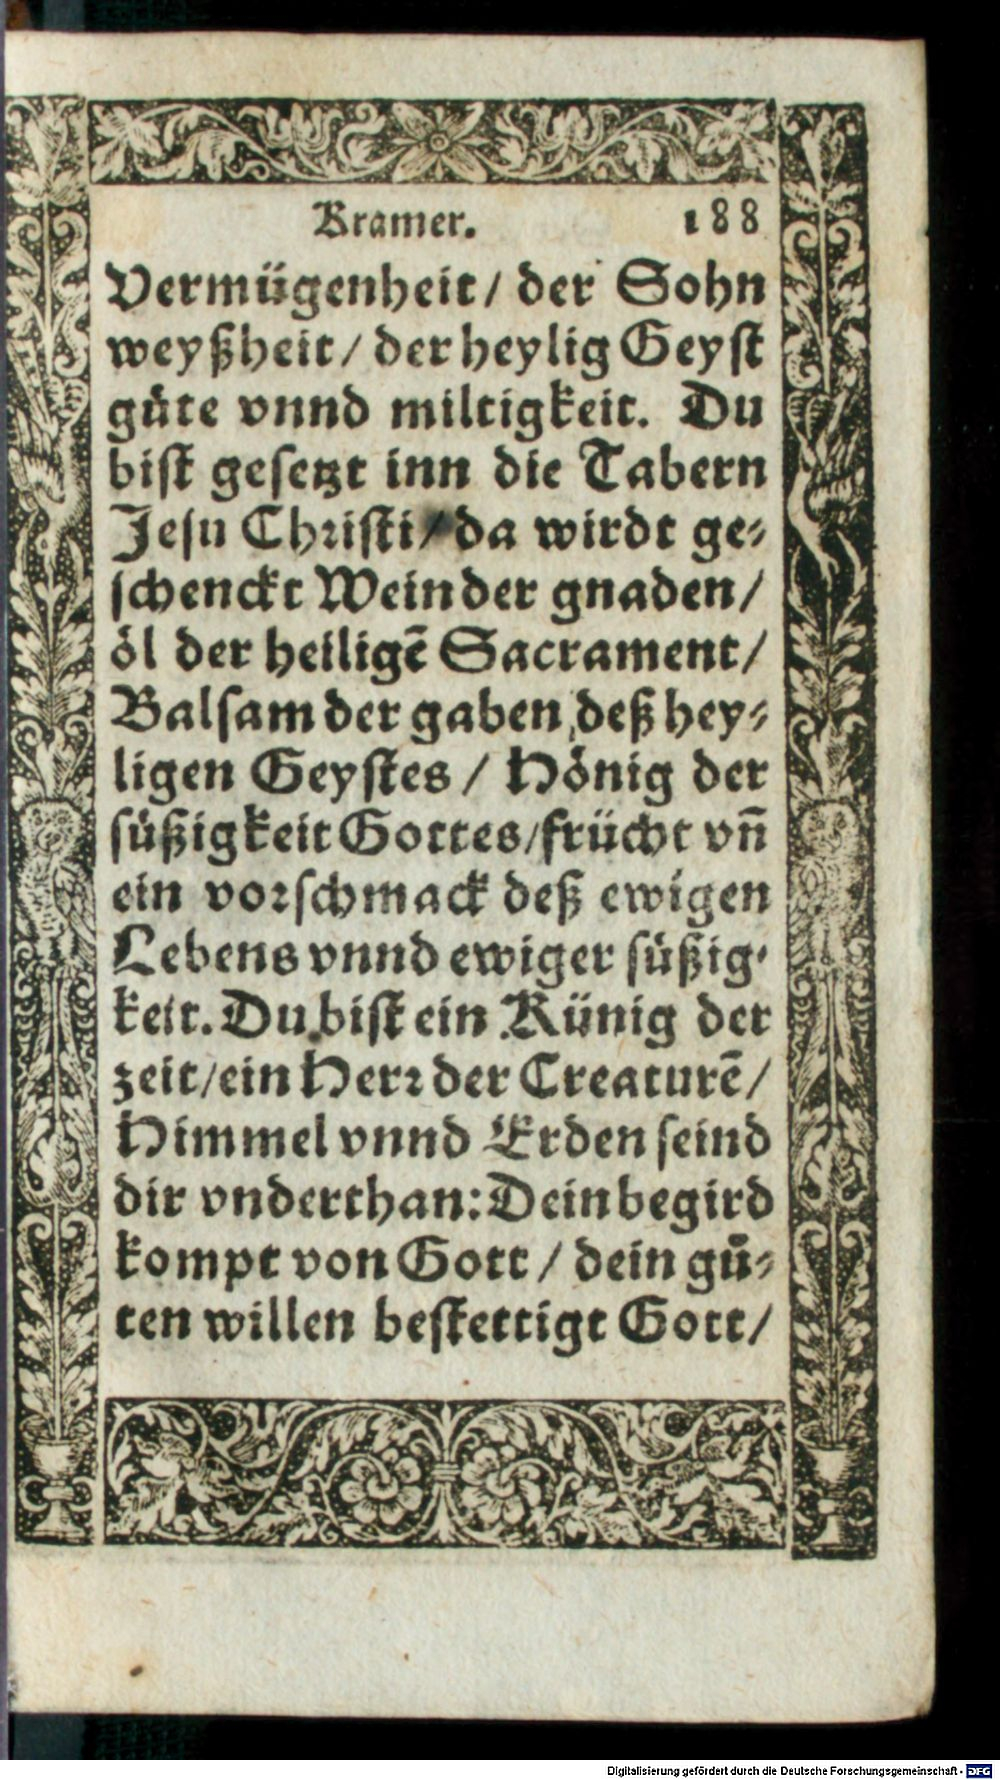 Kramer. 188
Vermügenheit / der Sohn
weyßheit / der heylig Geyst
güte vnnd miltigkeit. Du
bist gesetzt inn die Tabern
Jesu Christi / da wirdt ge⸗
schenckt Wein der gnaden /
öl der heiligē Sacrament /
Balsam der gaben deß hey⸗
ligen Geystes / Hönig der
süßigkeit Gottes / frücht vn̄
ein vorschmack deß ewigen
Lebens vnnd ewiger süßig⸗
keit. Du bist ein Künig der
zeit / ein Herr der Creaturē /
Himmel vnnd Erden seind
dir vnderthan: Dein begird
kompt von Gott / dein gů⸗
ten willen bestettigt Gott /
Digitalisierung gefördert durch die Deutsche Forschungsgemeinschaft - DFG